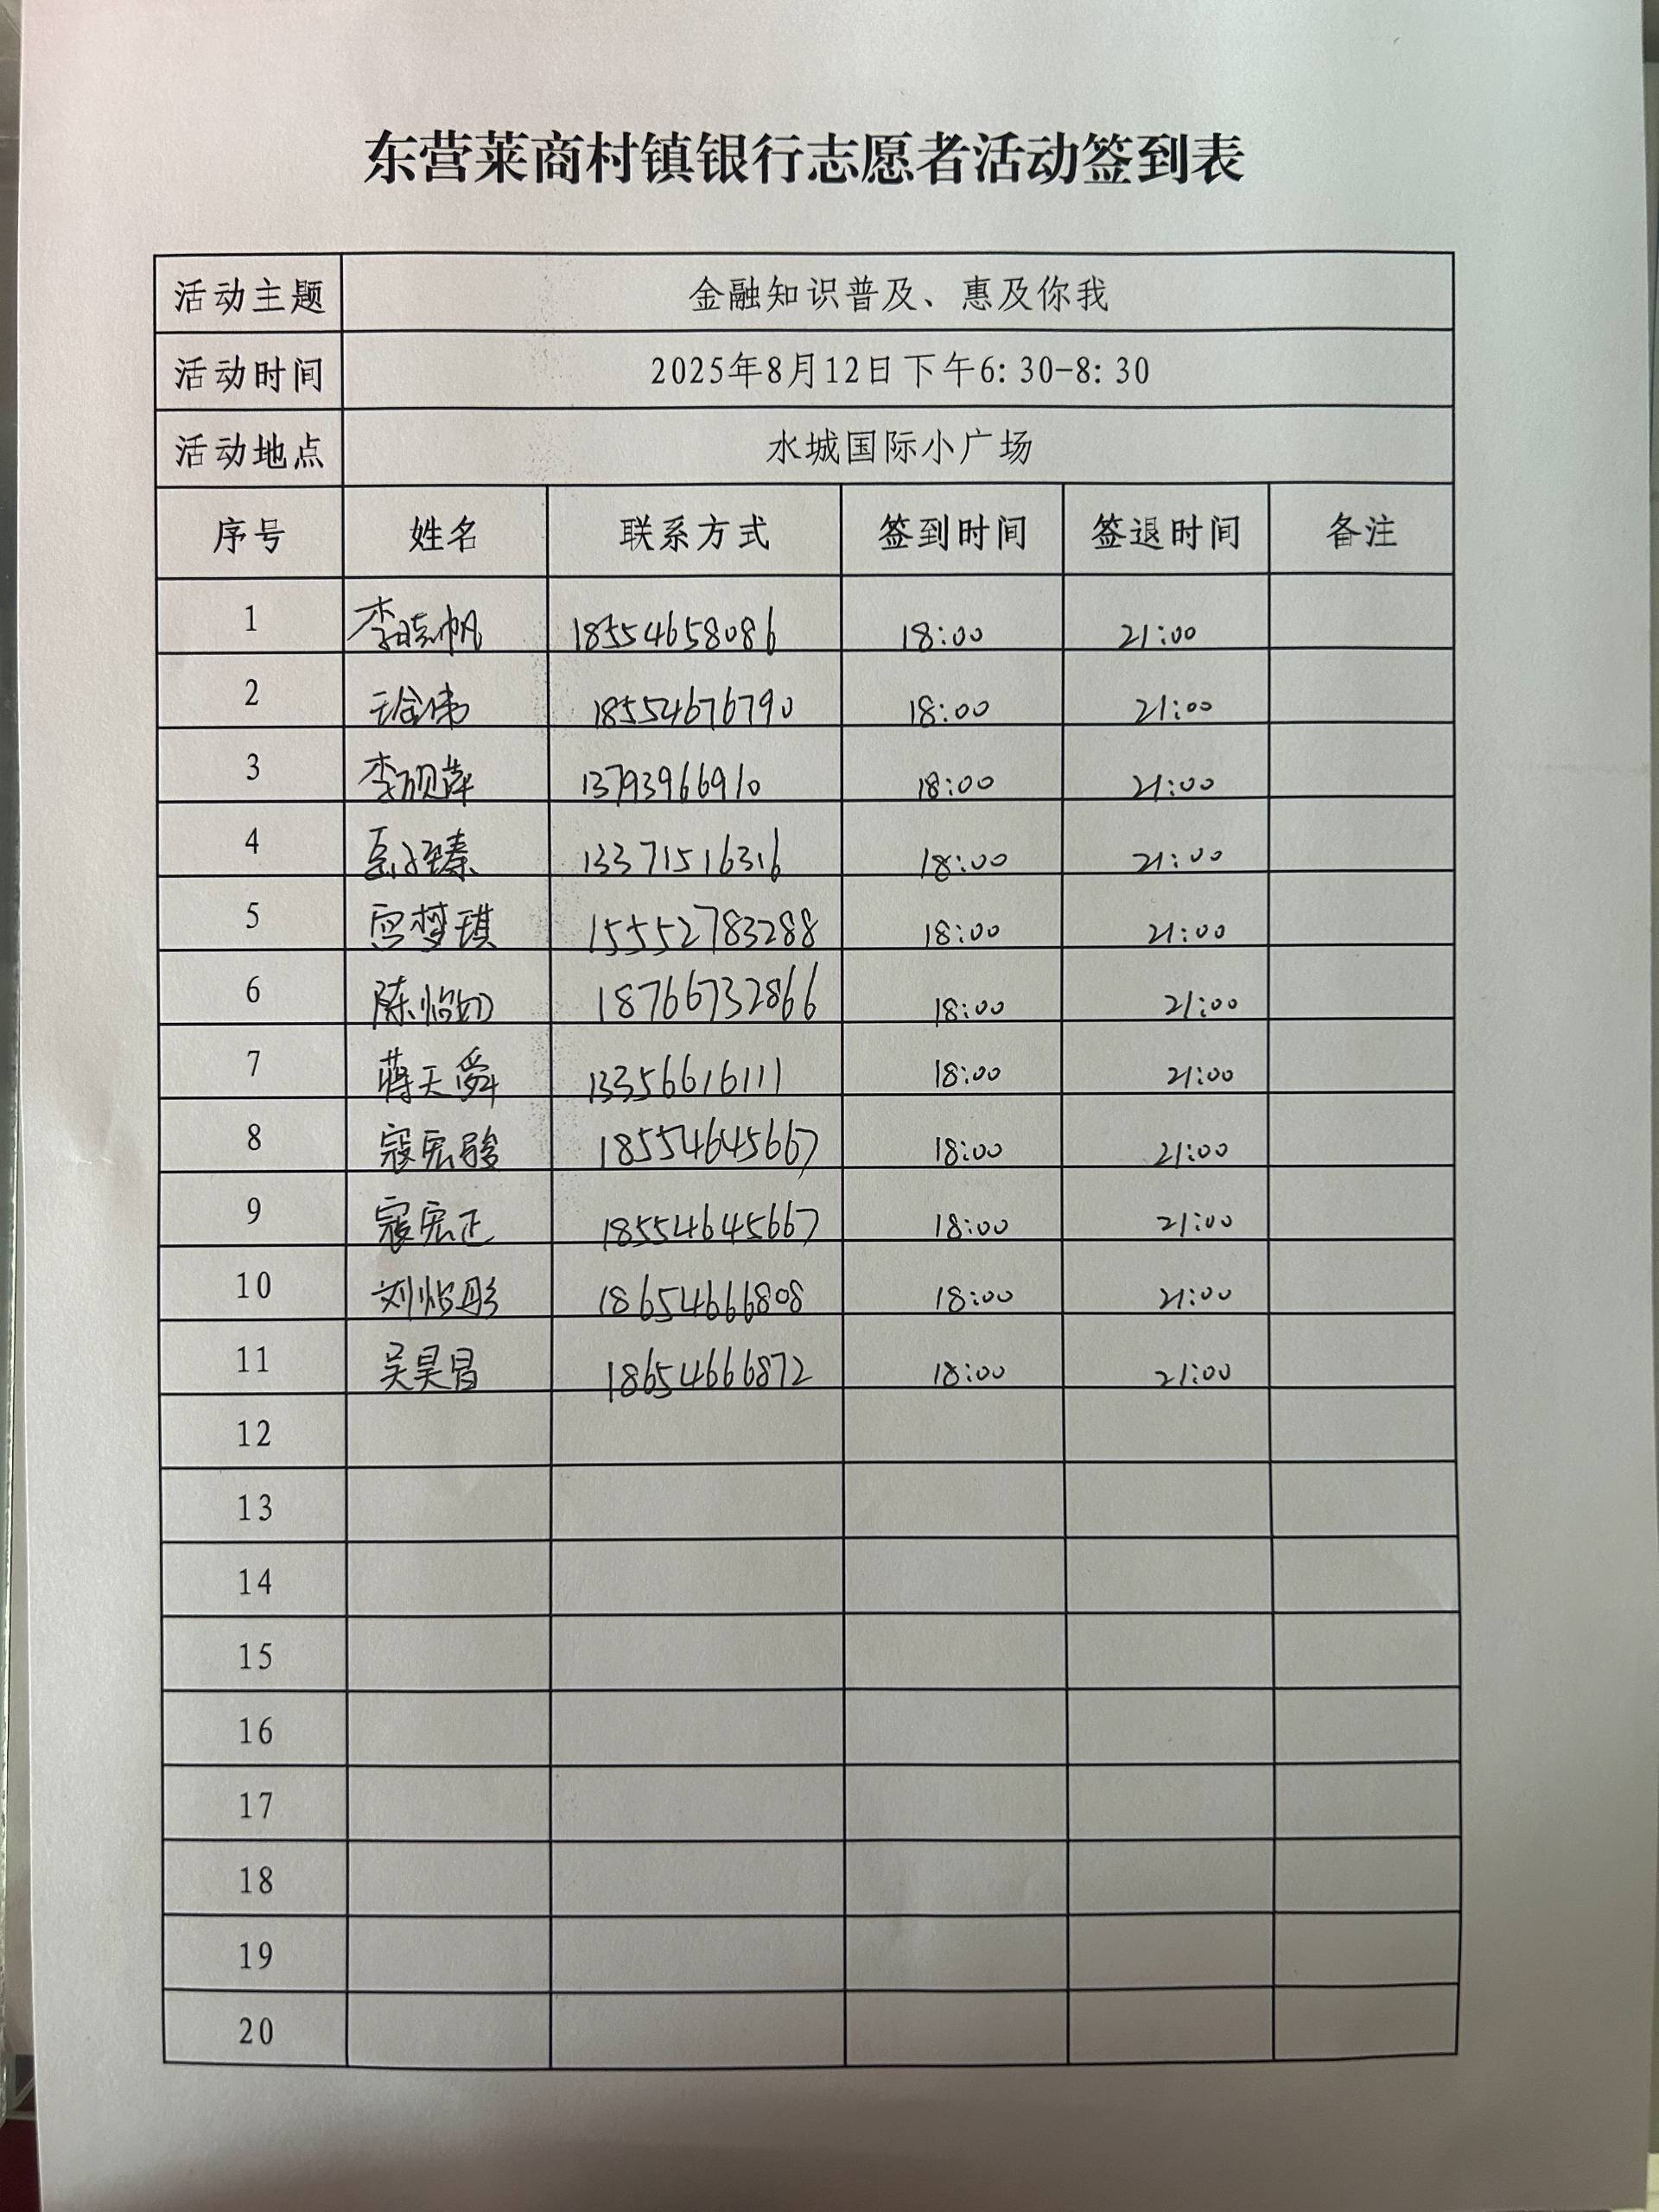 东营莱商村镇银行志愿者活动签到表
活动主题 金融知识普及、惠及你我
活动时间 2025年8月12日下午6:30-8:30
活动地点 水城国际小广场
序号 姓名 联系方式 签到时间 签退时间 备注
1 李晓帆 18554658086 18:00 21:00
2 18554676790 18:00 21:00
3 李砚萍 13793966910 18:00 21:00
4 13371516316 18:00 21:00
5 宫梦琪 15552783288 18:00 21:00
6 18766732866 18:00 21:00
7 蒋天舜 13356616111 18:00 21:00
8 寇宏骏 18554645667 18:00 21:00
9 寇宏正 18554645667 18:00 21:00
10 刘怡彤 18654666808 18:00 21:00
11 吴昊昌 18654666872 18:00 21:00
12
13
14
15
16
17
18
19
20